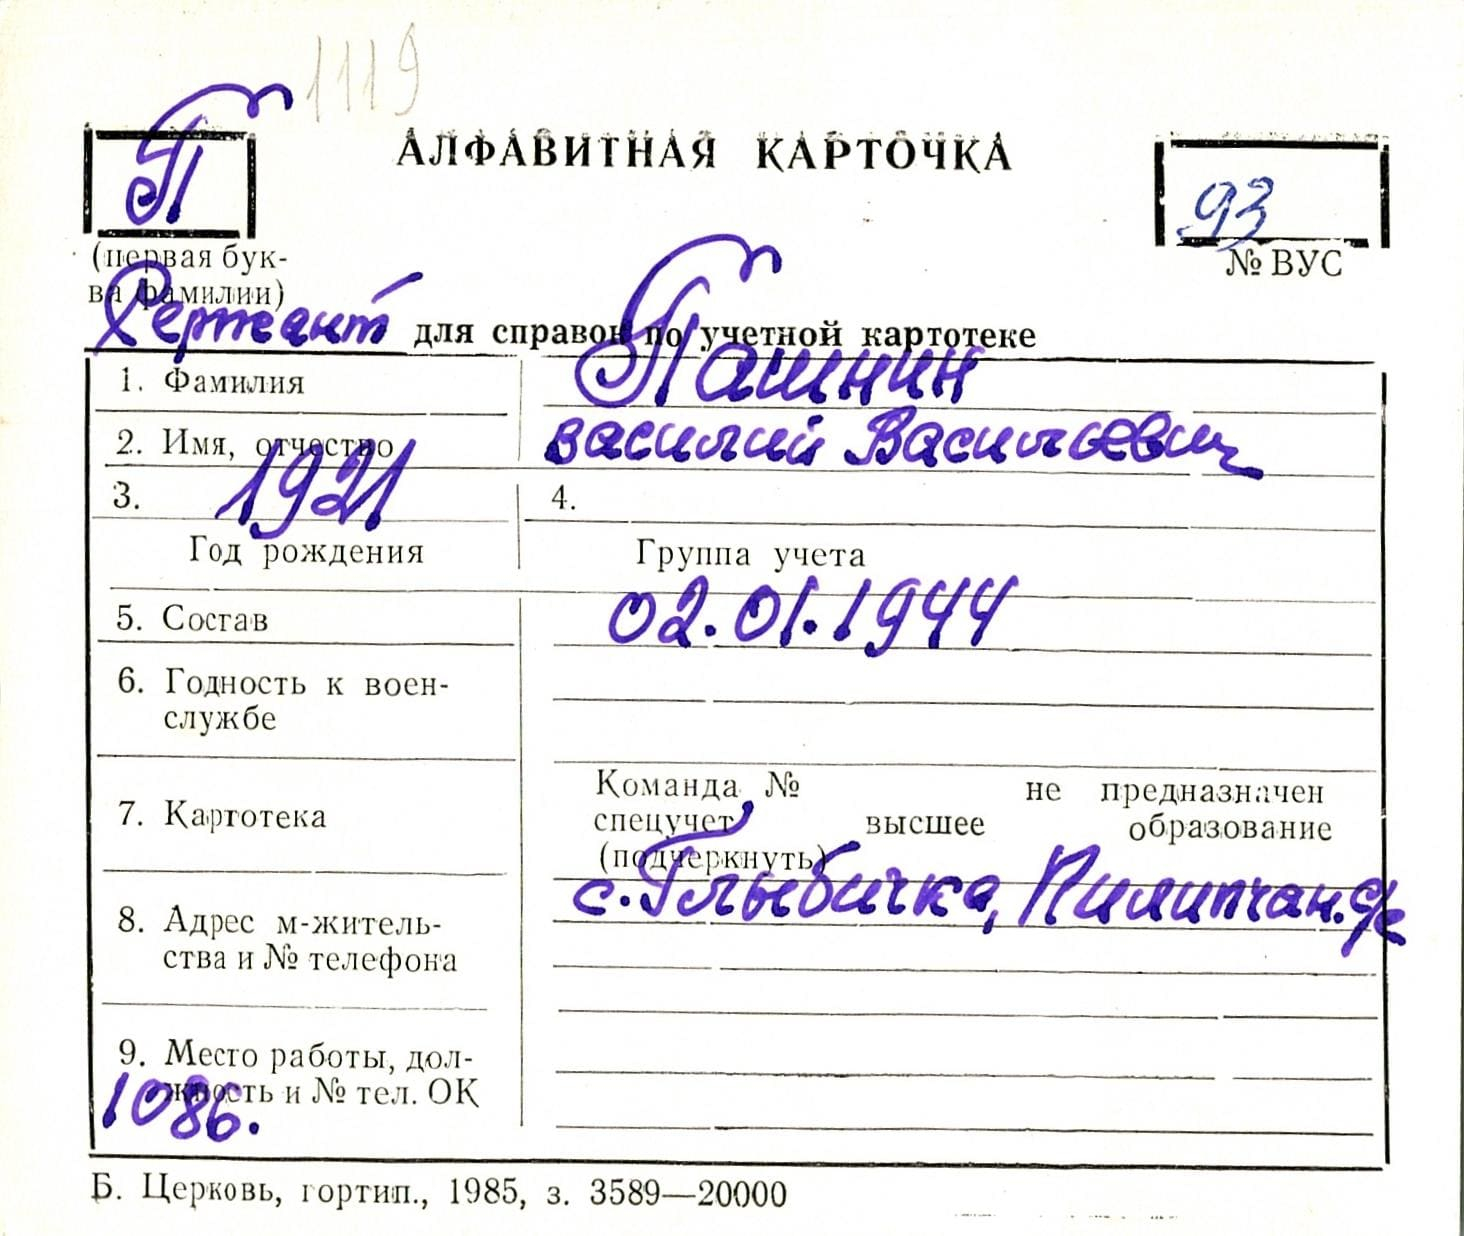 1119
П
АЛФАВИТНАЯ КАРТОЧКА
93
(первая бук-
ва фамилии)
№ ВУС
Сержант для справок по учетной картотеке
1. Фамилия Пашнин
2. Имя, отчество Василий Васильевич
3. 1921 4.
Год рождения Группа учета
5. Состав 02.01.1944
6. Годность к воен-
службе
Команда № не предназначен
7. Картотека спецучет высшее образование
(подчеркнуть)
с. Глыбичка, Пилипчан.
8. Адрес м-житель-
ства и № телефона
9. Место работы, дол-
жность и № тел. ОК
1086.
Б. Церковь, гортип., 1985, з. 3589—20000